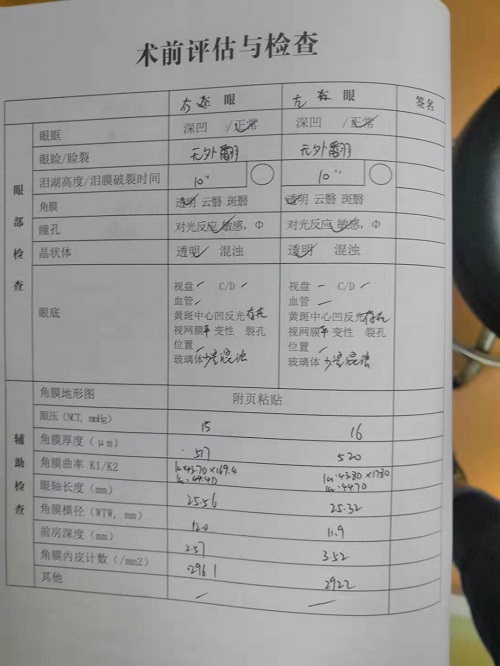 术前评估与检查
右 眼 左 眼 签名
眼部检查
眼眶 深凹 /正常 深凹 /正常
眼睑/睑裂 无外翻 无外翻
泪湖高度/泪膜破裂时间 10" 10"
角膜 透明 云翳 斑翳 透明 云翳 斑翳
瞳孔 对光反应 敏感，Φ 对光反应 敏感，Φ
晶状体 透明 混浊 透明 混浊
眼底
视盘 C/D 视盘 C/D
血管 血管
黄斑中心凹反光存在 黄斑中心凹反光存在
视网膜平 变性 裂孔 视网膜平 变性 裂孔
位置 位置
玻璃体少量混浊 玻璃体少量混浊
辅助检查
角膜地形图 附页粘贴
眼压(NCT, mmHg) 15 16
角膜厚度(μm) 517 520
角膜曲率 K1/K2 43.70×169.4 43.80×178.0
44.40 44.70
眼轴长度(mm) 25.56 25.32
角膜横径(WTW, mm) 12.0 11.9
前房深度(mm) 3.52
角膜内皮计数(/mm2) 2961 2922
其他